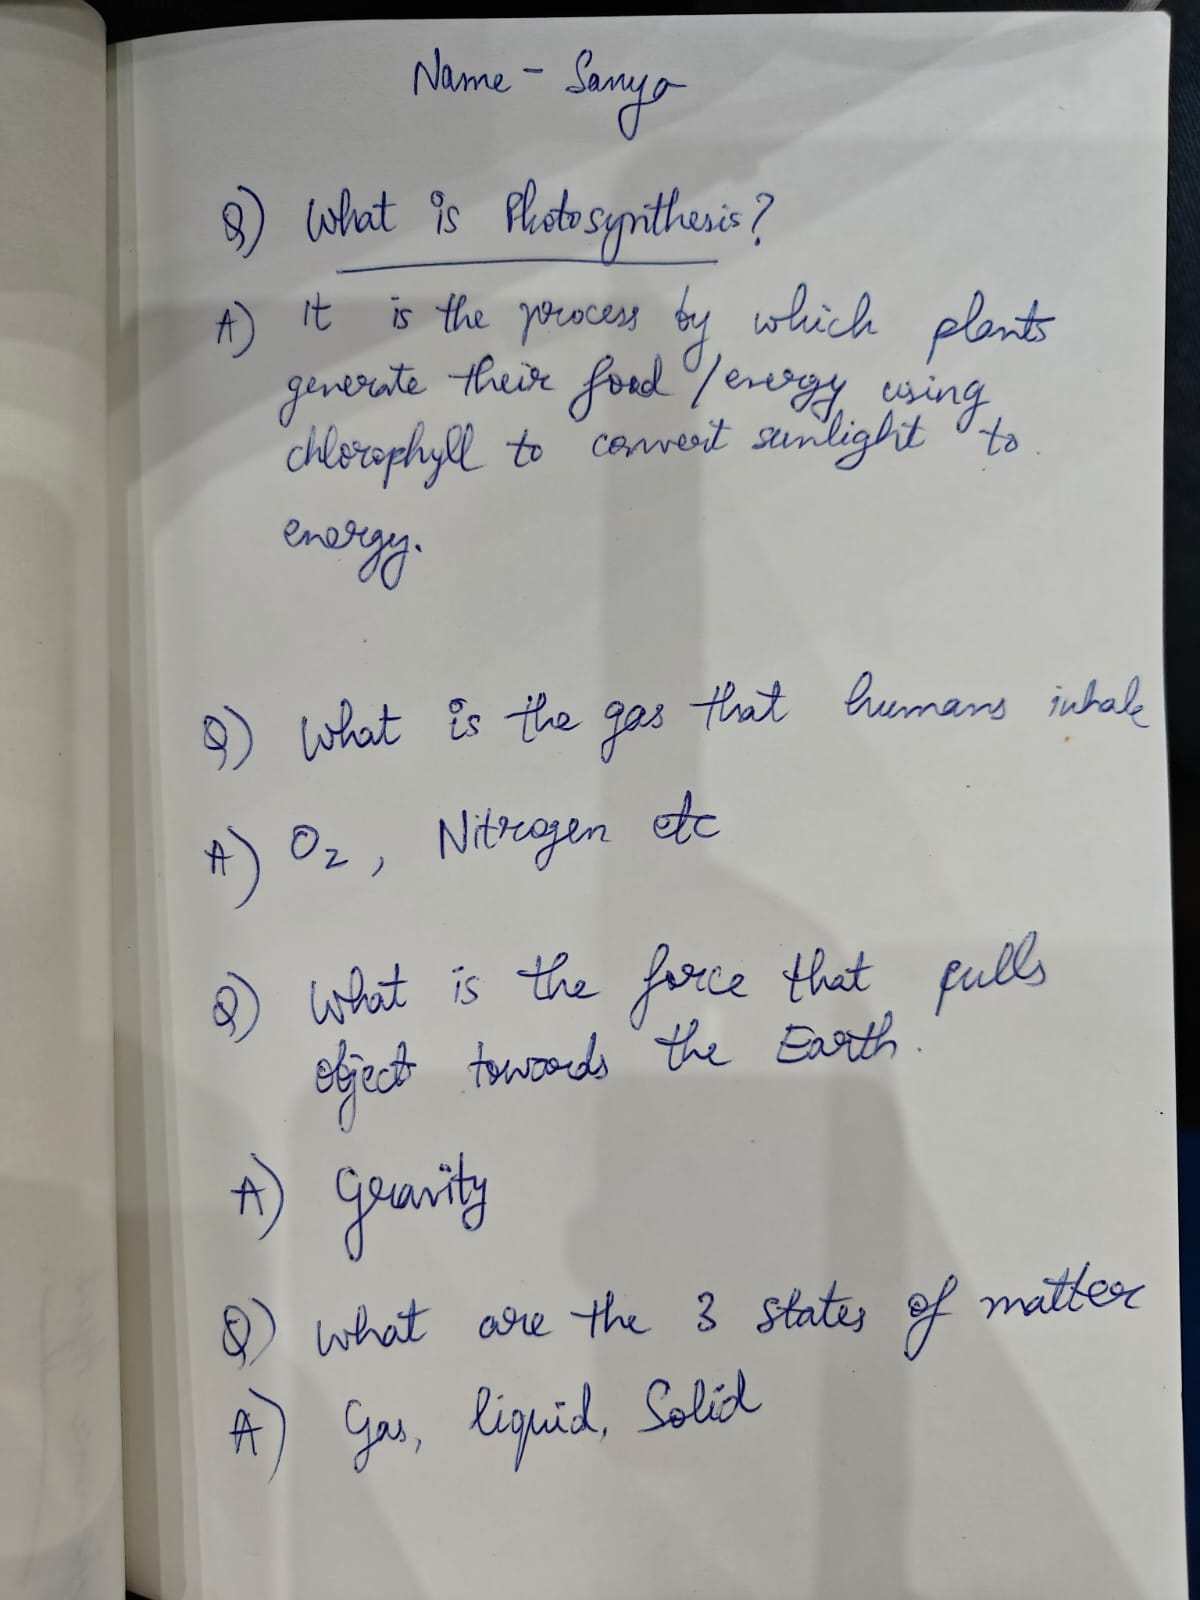 Name - Sanya
Q) What is Photosynthesis?
A) It is the process by which plants
generate their food / energy using
chlorophyll to convert sunlight to
energy.
Q) What is the gas that humans inhale
A) O2, Nitrogen etc
Q) What is the force that pulls
object towards the Earth.
A) Gravity
Q) What are the 3 states of matter
A) Gas, liquid, Solid